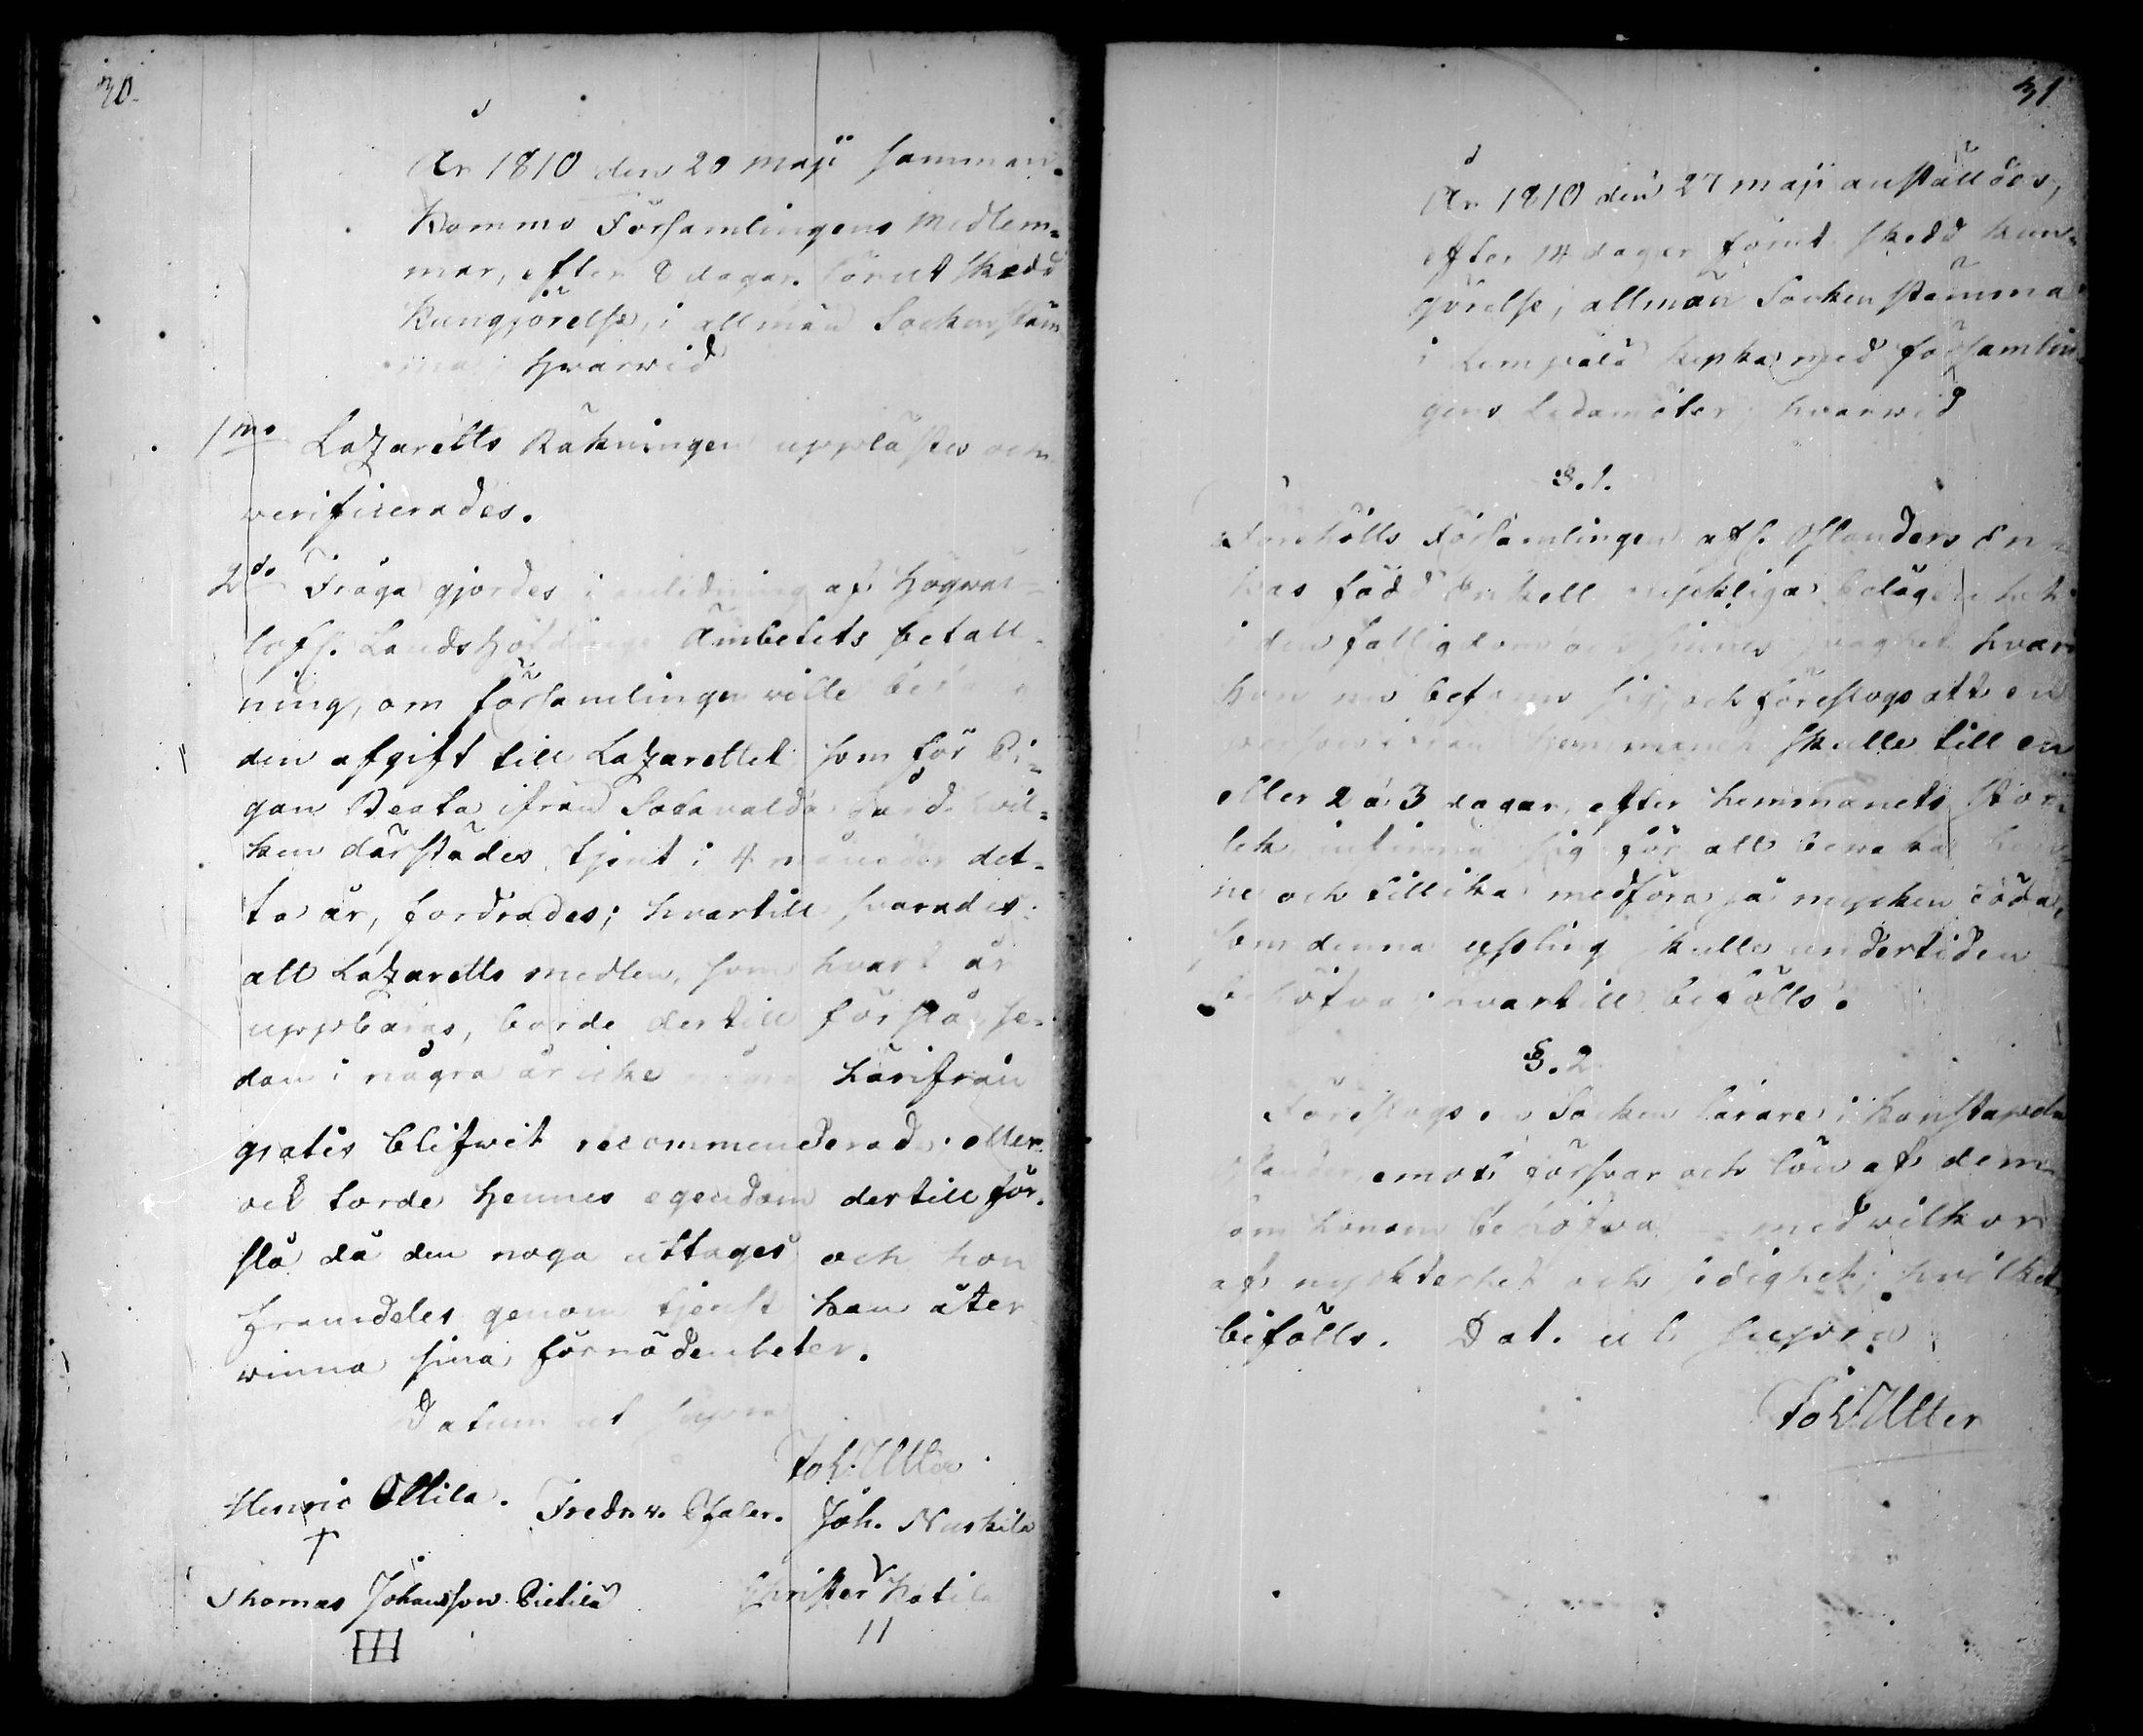 30.
År 1810 den 20 maji samman-
kommo Församlingens medlem-
mar, efter 8 dagar förut skedd
kungjörelse, i allmän Sockenstäm
ma, hwarwid
1mo Lazaretts Räkningen upplästes och
verificerades.
2do Fråga gjordes i anledning af Högwäl-
lofl. Landshöfdinge Ämbetets befall-
ning, om församlingen wille betala
den afgift till Lazarettet som för Pi-
gan Beata ifrån Sotavalda Gård, hwil-
ken därstädes tjent i 4 månader det-
ta år, fordrades; hvartill svarades:
att Lazaretts medlen, som hvart år
uppbäras, borde dertill förslå, se-
dan i några år icke någon härifrån
gratis blifwit recommenderad: eller
ock torde hennes egendom dertill för-
slå då den noga uttages och hon
framdeles genom tjenst kan åter
winna sina förnödenheter.
Datum ut supra
Joh. Utter
Henric Ollila. Fredr. v. Pfaler. Joh. Nuskila
Thomas Johansson Pietilä Christer Kotila
31
År 1810 den 27 maji anställdes,
efter 14 dagar förut skedd kun-
görelse, allmän Sockenstämma
i Lempälä kyrka med församlin
gens Ledamöter, hvarwid
§. 1.
Föreholls Församlingen afl. Olanders En-
kas född Enkell ynkliga belägenhet
i den fattigdom och sinnes svaghet hvari
hon nu befann sig, och föreslogs att en
person ifrån hemmanet skulle till en
eller 2 à 3 dagar, efter hemmanets stor-
lek, infinna sig för att bewaka hen
ne och tillika medföra så mycken föda,
som denna usling skulle undertiden
behöfva: hvartill bifölls.
§. 2.
Föreslogs en Socken lärare i Konstapeln
Olander, emot försvar och lön af dem
som honom behöfva - med vilkor
af nykterhet och idighet; hvilket
bifölls. Dat. ut supra
Joh. Utter